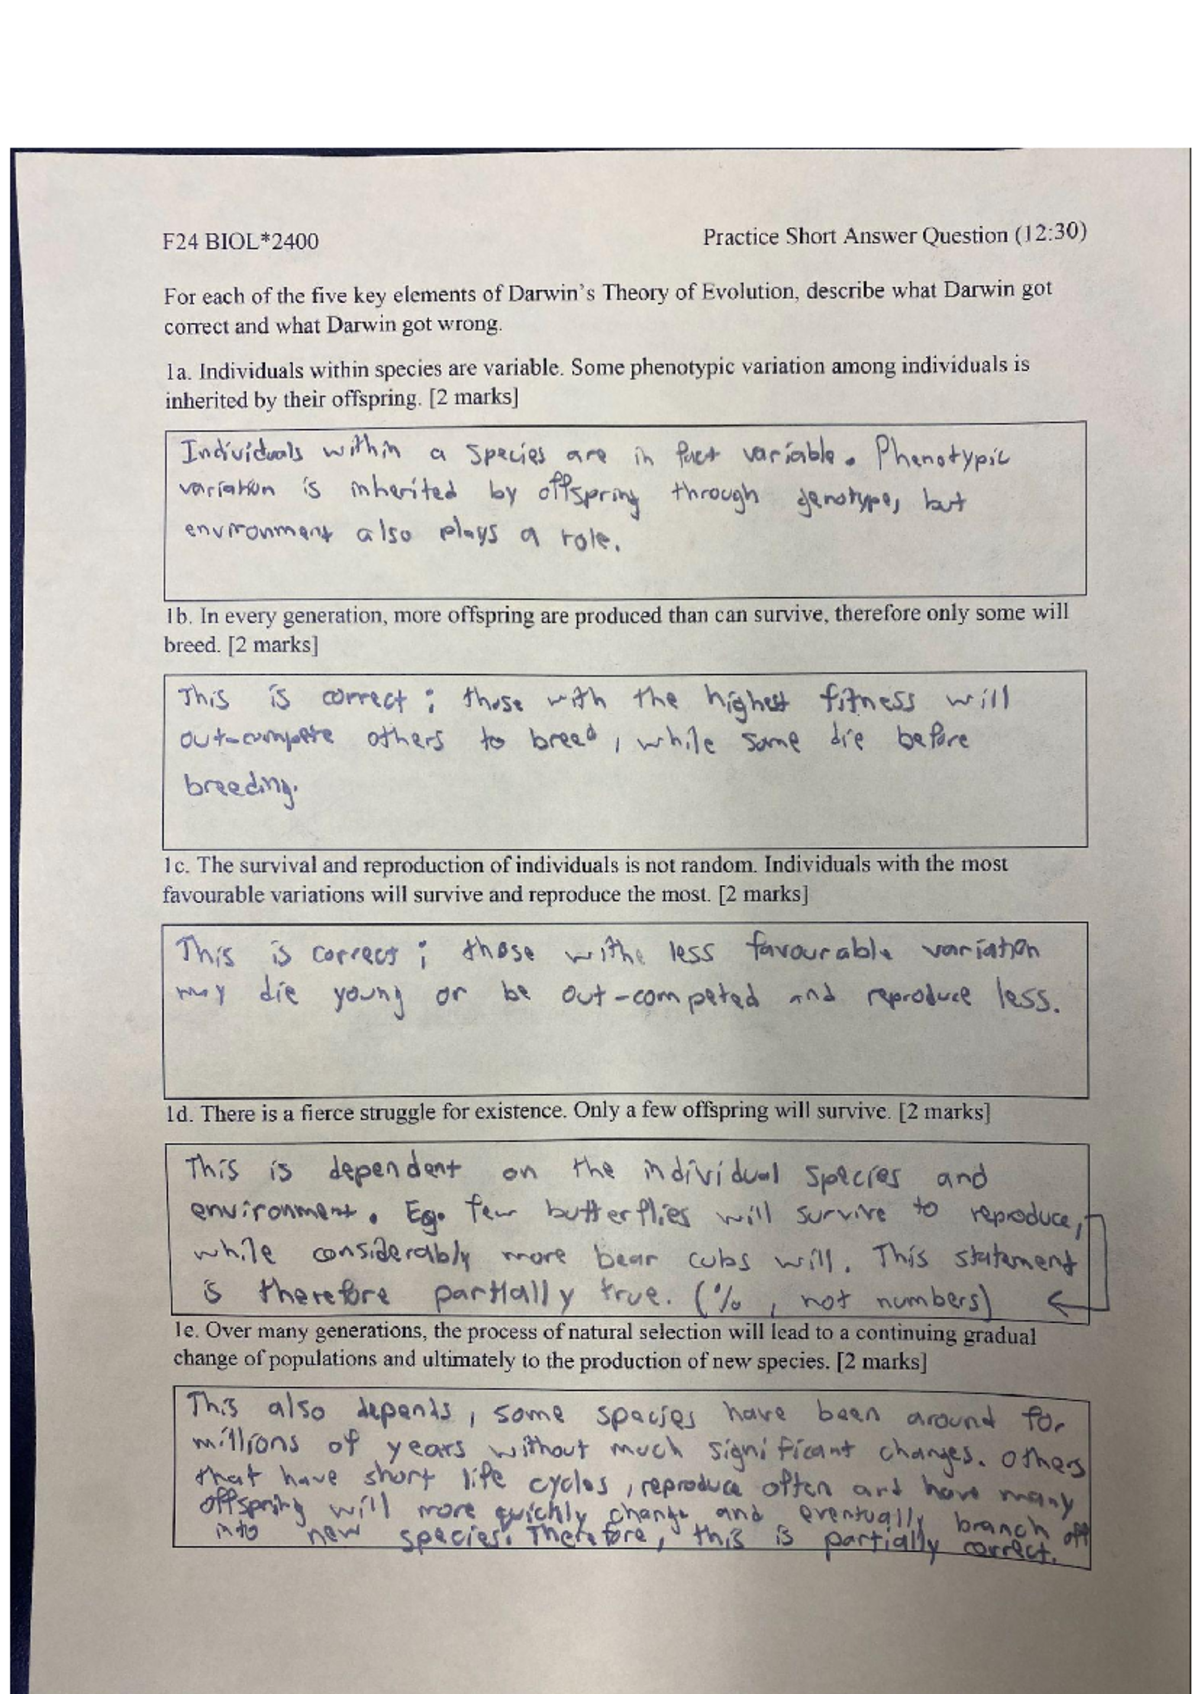 F24 BIOL*2400
Practice Short Answer Question (12:30)
For each of the five key elements of Darwin's Theory of Evolution, describe what Darwin got
correct and what Darwin got wrong.
1a. Individuals within species are variable. Some phenotypic variation among individuals is
inherited by their offspring. [2 marks]
Individuals within a species are in fact variable. Phenotypic
variation is inherited by offspring through genotype, but
environment also plays a role.
1b. In every generation, more offspring are produced than can survive, therefore only some will
breed. [2 marks]
This is correct; those with the highest fitness will
out-compete others to breed, while some die before
breeding.
1c. The survival and reproduction of individuals is not random. Individuals with the most
favourable variations will survive and reproduce the most. [2 marks]
This is correct; those withe less favourable variation
may die young or be out-competed and reproduce less.
1d. There is a fierce struggle for existence. Only a few offspring will survive. [2 marks]
This is dependent on the individual species and
environment. Eg. few butterflies will survive to reproduce,
while considerably more bear cubs will. This statement
is therefore partially true. (%, not numbers)
1e. Over many generations, the process of natural selection will lead to a continuing gradual
change of populations and ultimately to the production of new species. [2 marks]
This also depends, some species have been around for
millions of years without much significant changes. Others
that have short life cycles, reproduce often and have many
offspring will more quickly change and eventually branch off
into new species. Therefore, this is partially correct.